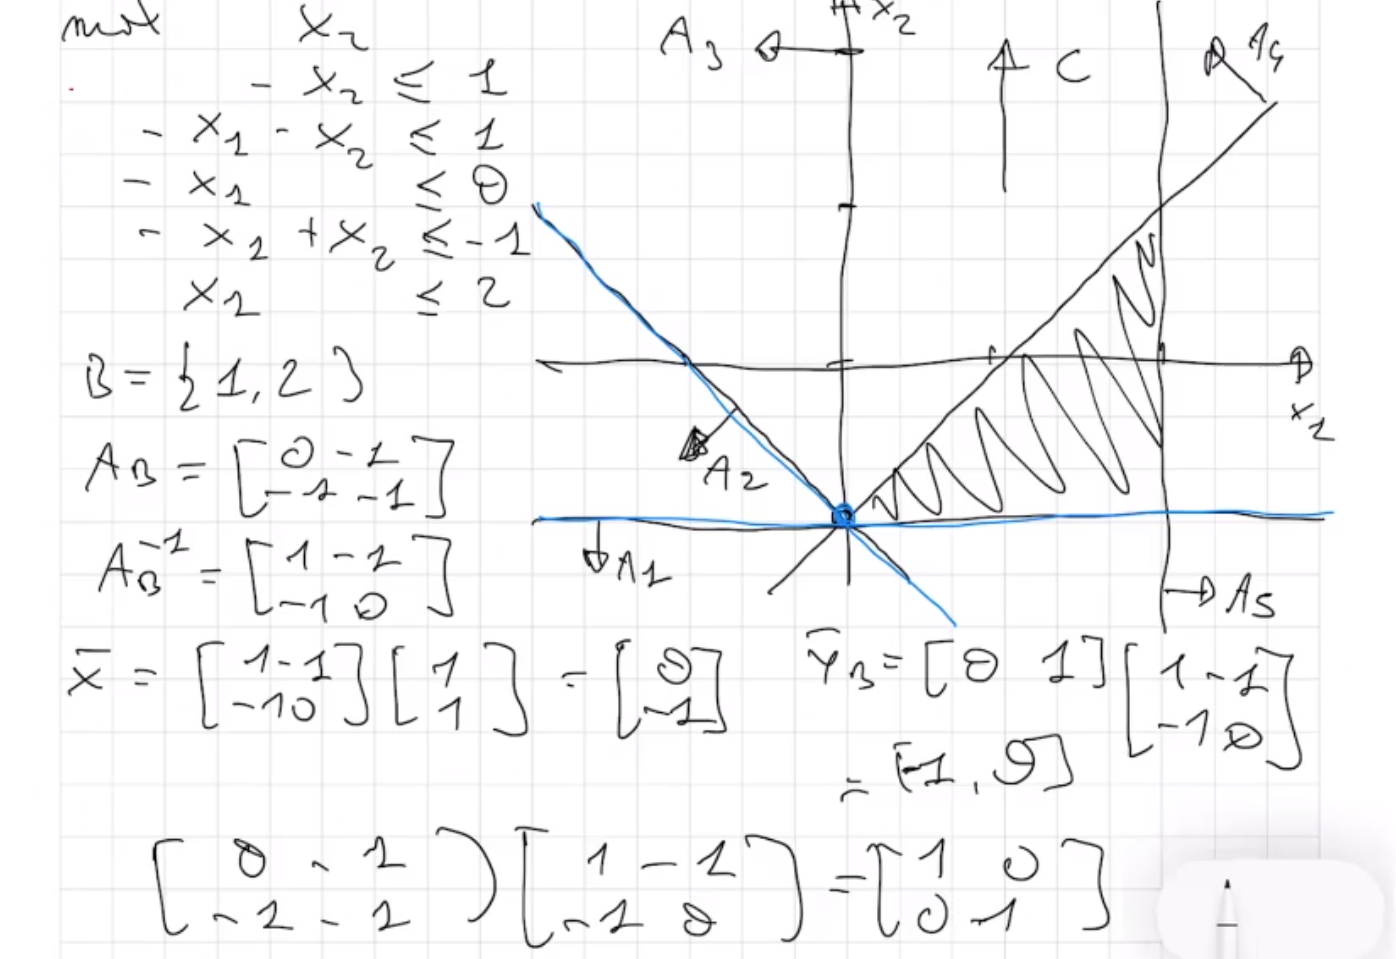 max x₂
- x₂ ≤ 1
- x₁ - x₂ ≤ 1
- x₁ ≤ 0
- x₁ + x₂ ≤ -1
x₁ ≤ 2
B = {1, 2}
A_B = [0 -1
-1 -1]
A_B⁻¹ = [1 -1
-1 0]
x̄ = [1 -1
-1 0] [1
1] = [0
-1]
ȳ_B = [0 1] [1 -1
-1 0]
= [-1, 0]
[0 -1
-1 -1] [1 -1
-1 0] = [1 0
0 1]
x₂
A3
C
A4
x₁
A2
A1
A5